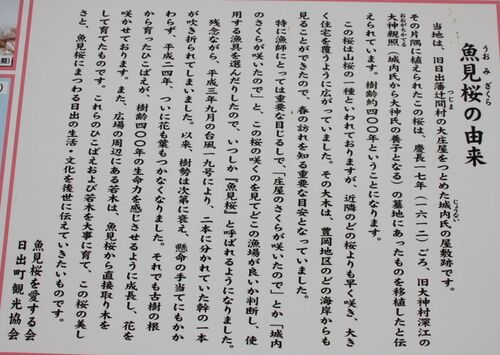 魚見桜の由来
うおみざくら
当地は、旧日出藩辻間村の大庄屋をつとめた城内氏の屋敷跡です。
つじま
じょうない
その片隅に植えられたこの桜は、慶長一七年(一六一二)ごろ、旧大神村深江の
大神親照(城内氏から大神氏の養子となる)の墓地にあったものを移植したと伝
えられています。樹齢約四〇〇年ということになります。
この桜は山桜の一種といわれておりますが、近隣のどの桜よりも早く咲き、大き
く住宅を覆うように広がっていました。その大木は、豊岡地区のどの海岸からも
見ることができたので、春の訪れを知る重要な目安となっていました。
特に漁師にとっては重要な目じるしで、「庄屋のさくらが咲いたので」とか「城内
のさくらが咲いたので」と、この桜の咲くのを見てどこの漁場が良いか判断し、使
用する漁具を選んだりしたので、いつしか『魚見桜』と呼ばれるようになりました。
残念ながら、平成三年九月の台風一九号により、二本に分かれていた幹の一本
が吹き折られてしまいました。以来、樹勢は次第に衰え、懸命の手当てにもかか
わらず、平成二四年、ついに花も葉もつかなくなりました。それでも古樹の根
から育ったひこばえが、樹齢四〇〇年の生命力を感じさせるように成長し、花を
咲かせております。また、広場の周辺にある若木は、魚見桜から直接取り木を
して育てたものです。これらのひこばえおよび若木を大事に育て、この桜の美し
さと、魚見桜にまつわる日出の生活・文化を後世に伝えていきたいものです。
魚見桜を愛する会
日出町観光協会